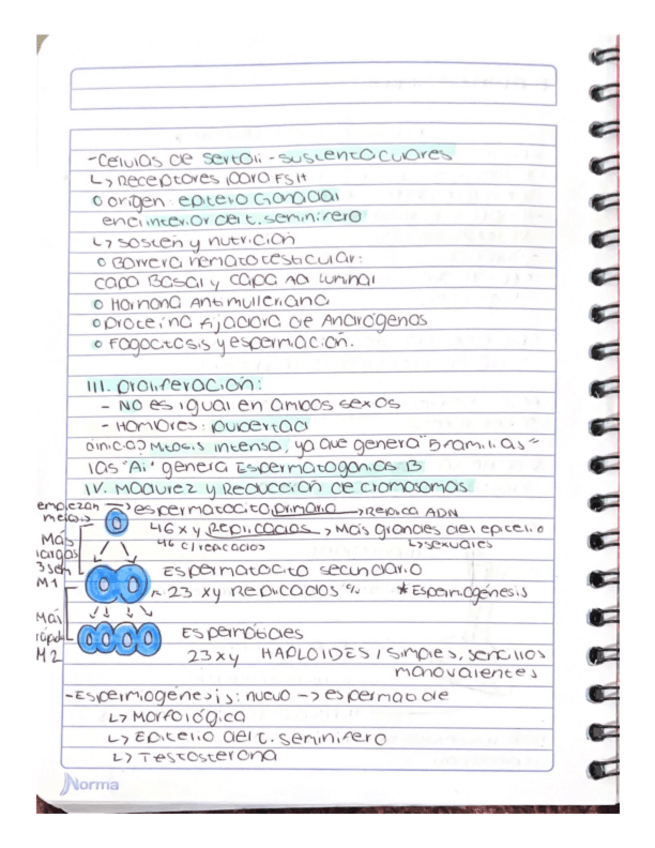 -Células de Sertoli - sustentaculares
↳ Receptores para FSH
o origen: epitelio Gonadal
en el interior del t. seminifero
↳ sostén y nutrición
o Barrera hematotesticular:
capa Basal y capa Ad luminal
o Hormona Antimulleriana
o proteína fijadora de Andrógenos
o Fagocitosis y espermiación.
III. proliferación:
- NO es igual en ambos sexos
- Hombres: pubertad
Mitosis intensa, ya que genera "5 familias"
las "A1" genera Espermatogonias B
IV. Madurez y Reducción de cromosomas
empiezan meiosis → espermatocito primario → Replica ADN
46 xy Replicados → Más grandes del epitelio
46 c/replicados ↳ sexuales
Más largas 3 sem M1
Espermatocito secundario
23 xy Replicados % * Espermiogénesis
Más rápida M2
Espermátides
23 xy HAPLOIDES / simples, sencillos
monovalentes
-Espermiogénesis: nuevo → espermatide
↳ Morfológica
↳ Epitelio del t. seminifero
↳ Testosterona
Norma